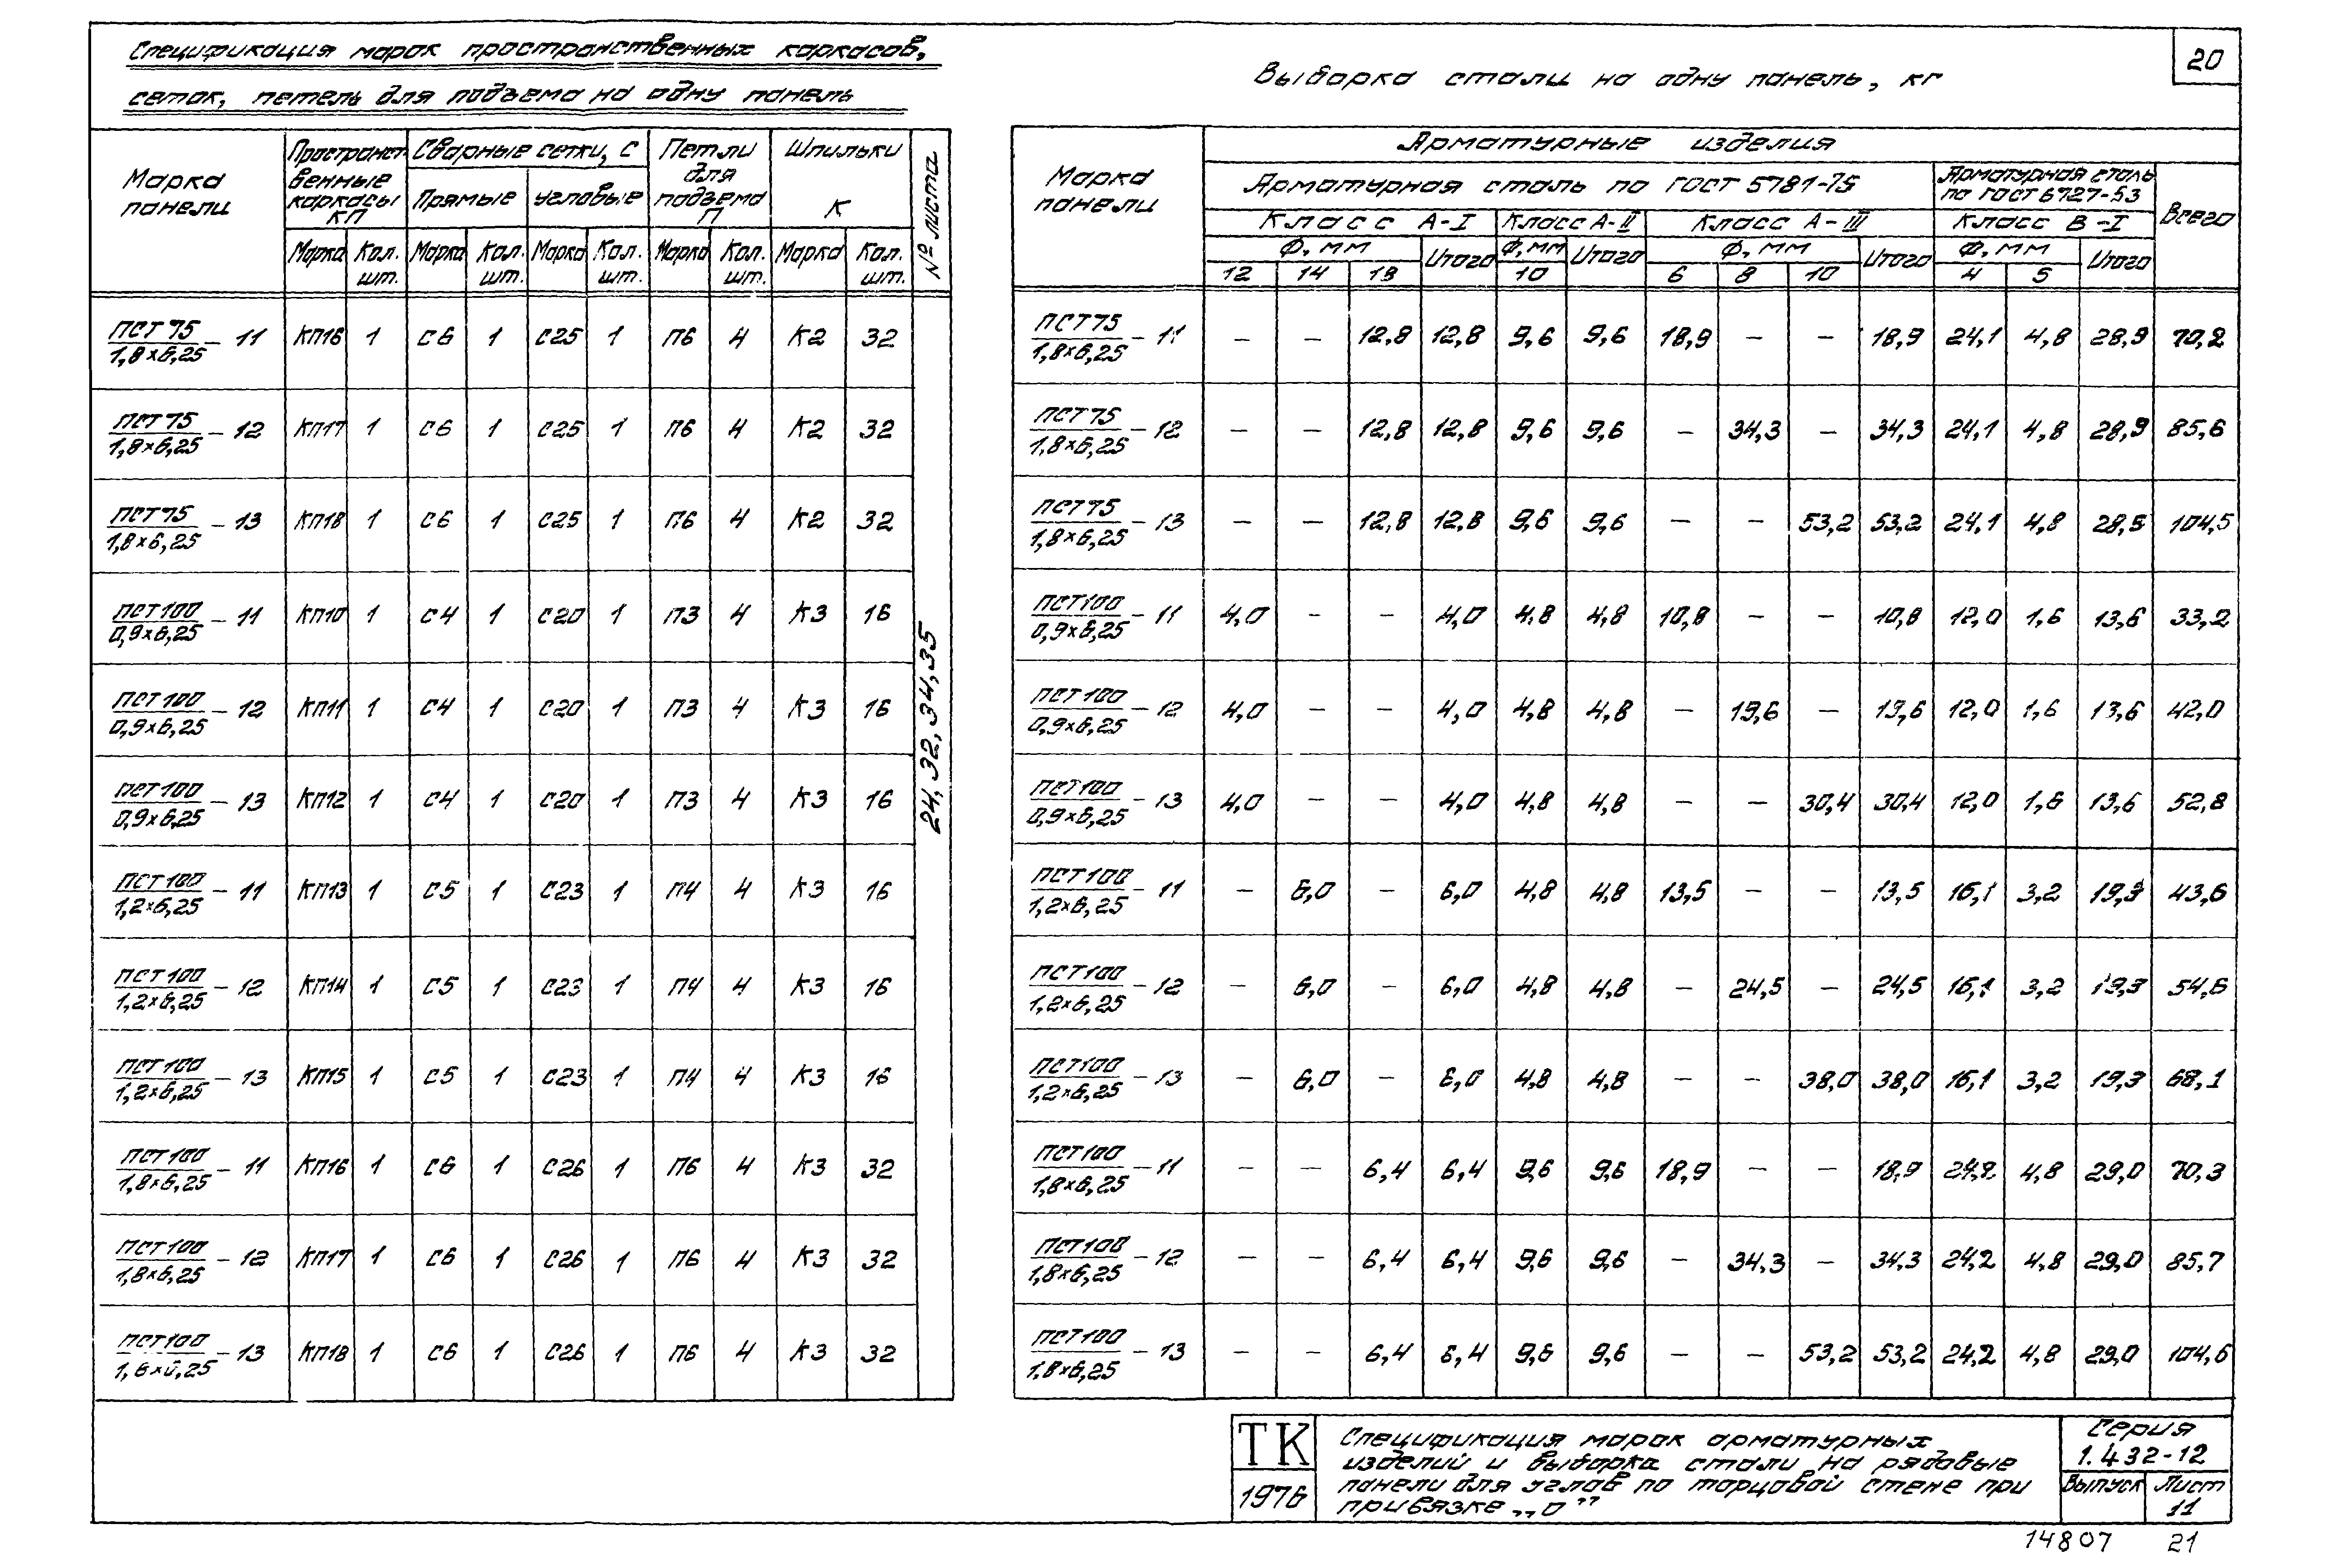 20
Спецификация марок пространственных каркасов,
сеток, петель для подъема на одну панель
Марка панели | Пространственные каркасы КП | Сварные сетки, С | Петли для подъема П | Шпильки К | № листа
Прямые | Угловые
Марка | Кол. шт. | Марка | Кол. шт. | Марка | Кол. шт. | Марка | Кол. шт. | Марка | Кол. шт.
ПСТ 75/1,8×6,25 – 11 | КП16 | 1 | С6 | 1 | С25 | 1 | П6 | 4 | К2 | 32
ПСТ 75/1,8×6,25 – 12 | КП17 | 1 | С6 | 1 | С25 | 1 | П6 | 4 | К2 | 32
ПСТ 75/1,8×6,25 – 13 | КП18 | 1 | С6 | 1 | С25 | 1 | П6 | 4 | К2 | 32
ПСТ 100/0,9×6,25 – 11 | КП10 | 1 | С4 | 1 | С20 | 1 | П3 | 4 | К3 | 16
ПСТ 100/0,9×6,25 – 12 | КП11 | 1 | С4 | 1 | С20 | 1 | П3 | 4 | К3 | 16
ПСТ 100/0,9×6,25 – 13 | КП12 | 1 | С4 | 1 | С20 | 1 | П3 | 4 | К3 | 16
ПСТ 100/1,2×6,25 – 11 | КП13 | 1 | С5 | 1 | С23 | 1 | П4 | 4 | К3 | 16
ПСТ 100/1,2×6,25 – 12 | КП14 | 1 | С5 | 1 | С23 | 1 | П4 | 4 | К3 | 16
ПСТ 100/1,2×6,25 – 13 | КП15 | 1 | С5 | 1 | С23 | 1 | П4 | 4 | К3 | 16
ПСТ 100/1,8×6,25 – 11 | КП16 | 1 | С6 | 1 | С26 | 1 | П6 | 4 | К3 | 32
ПСТ 100/1,8×6,25 – 12 | КП17 | 1 | С6 | 1 | С26 | 1 | П6 | 4 | К3 | 32
ПСТ 100/1,8×6,25 – 13 | КП18 | 1 | С6 | 1 | С26 | 1 | П6 | 4 | К3 | 32
24, 32, 34, 35
Выборка стали на одну панель, кг
Марка панели | Арматурные изделия
Арматурная сталь по ГОСТ 5781-75 | Арматурная сталь по ГОСТ 6727-53 | Всего
Класс А-I | Класс А-II | Класс А-III | Класс В-I
Ф, мм | Итого | Ф, мм | Итого | Ф, мм | Итого | Ф, мм | Итого
12 | 14 | 18 | 10 | 6 | 8 | 10 | 4 | 5
ПСТ 75/1,8×6,25 – 11 | – | – | 12,8 | 12,8 | 9,6 | 9,6 | 18,9 | – | – | 18,9 | 24,1 | 4,8 | 28,9 | 70,2
ПСТ 75/1,8×6,25 – 12 | – | – | 12,8 | 12,8 | 9,6 | 9,6 | – | 34,3 | – | 34,3 | 24,1 | 4,8 | 28,9 | 85,6
ПСТ 75/1,8×6,25 – 13 | – | – | 12,8 | 12,8 | 9,6 | 9,6 | – | – | 53,2 | 53,2 | 24,1 | 4,8 | 28,9 | 104,5
ПСТ 100/0,9×6,25 – 11 | 4,0 | – | – | 4,0 | 4,8 | 4,8 | 10,8 | – | – | 10,8 | 12,0 | 1,6 | 13,6 | 33,2
ПСТ 100/0,9×6,25 – 12 | 4,0 | – | – | 4,0 | 4,8 | 4,8 | – | 19,6 | – | 19,6 | 12,0 | 1,6 | 13,6 | 42,0
ПСТ 100/0,9×6,25 – 13 | 4,0 | – | – | 4,0 | 4,8 | 4,8 | – | – | 30,4 | 30,4 | 12,0 | 1,6 | 13,6 | 52,8
ПСТ 100/1,2×6,25 – 11 | – | 6,0 | – | 6,0 | 4,8 | 4,8 | 13,5 | – | – | 13,5 | 16,1 | 3,2 | 19,3 | 43,6
ПСТ 100/1,2×6,25 – 12 | – | 6,0 | – | 6,0 | 4,8 | 4,8 | – | 24,5 | – | 24,5 | 16,1 | 3,2 | 19,3 | 54,6
ПСТ 100/1,2×6,25 – 13 | – | 6,0 | – | 6,0 | 4,8 | 4,8 | – | – | 38,0 | 38,0 | 16,1 | 3,2 | 19,3 | 68,1
ПСТ 100/1,8×6,25 – 11 | – | – | 6,4 | 6,4 | 9,6 | 9,6 | 18,9 | – | – | 18,9 | 24,2 | 4,8 | 29,0 | 70,3
ПСТ 100/1,8×6,25 – 12 | – | – | 6,4 | 6,4 | 9,6 | 9,6 | – | 34,3 | – | 34,3 | 24,2 | 4,8 | 29,0 | 85,7
ПСТ 100/1,8×6,25 – 13 | – | – | 6,4 | 6,4 | 9,6 | 9,6 | – | – | 53,2 | 53,2 | 24,2 | 4,8 | 29,0 | 104,6
ТК
1976
Спецификация марок арматурных
изделий и выборка стали на рядовые
панели для углов по торцовой стене при
привязке „0"
Серия
1.432-12
Выпуск | Лист
11
14807 21